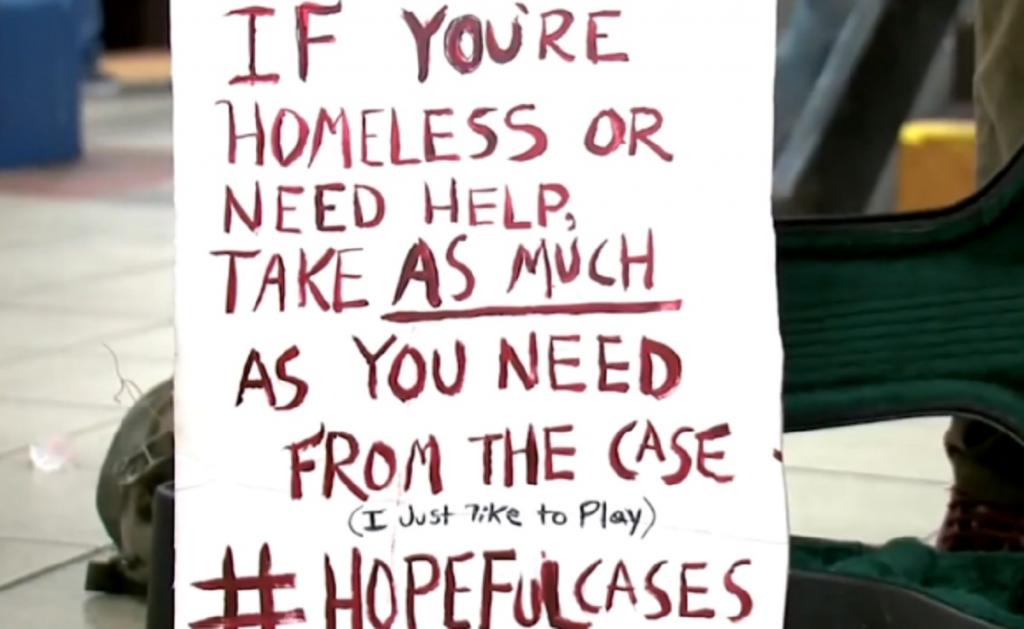 IF YOU'RE
HOMELESS OR
NEED HELP,
TAKE AS MUCH
AS YOU NEED
FROM THE CASE
(I Just like to Play)
#HOPEFULCASES